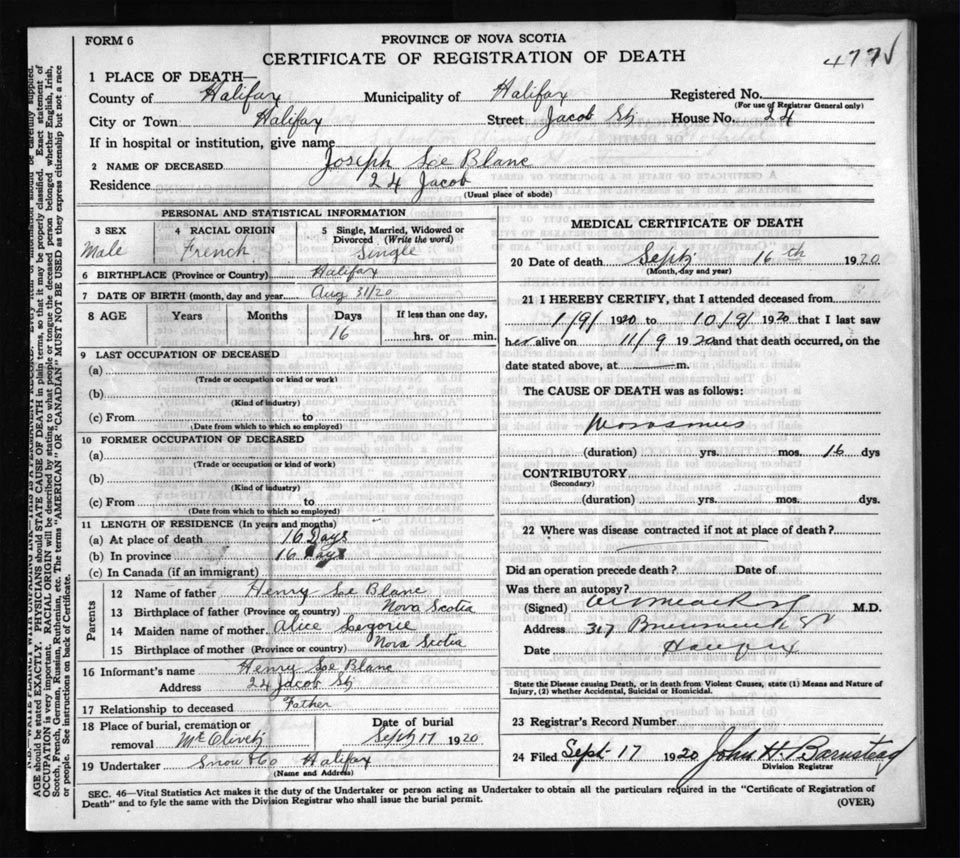 FORM 6
PROVINCE OF NOVA SCOTIA
CERTIFICATE OF REGISTRATION OF DEATH
477
1 PLACE OF DEATH—
County of Halifax Municipality of Halifax Registered No.
(For use of Registrar General only)
City or Town Halifax Street Jacob St House No. 24
If in hospital or institution, give name
2 NAME OF DECEASED Joseph Le Blanc
Residence 24 Jacob
(Usual place of abode)
PERSONAL AND STATISTICAL INFORMATION
3 SEX Male
4 RACIAL ORIGIN French
5 Single, Married, Widowed or Divorced (Write the word) Single
6 BIRTHPLACE (Province or Country) Halifax
7 DATE OF BIRTH (month, day and year) Aug 31/20
8 AGE Years Months Days 16 If less than one day, hrs. or min.
9 LAST OCCUPATION OF DECEASED
(a)
(Trade or occupation or kind or work)
(b)
(Kind of industry)
(c) From to
(Date from which to which so employed)
10 FORMER OCCUPATION OF DECEASED
(a)
(Trade or occupation or kind of work)
(b)
(Kind of industry)
(c) From to
(Date from which to which so employed)
11 LENGTH OF RESIDENCE (In years and months)
(a) At place of death 16 Days
(b) In province 16 Days
(c) In Canada (if an immigrant)
Parents
12 Name of father Henry Le Blanc
13 Birthplace of father (Province or country) Nova Scotia
14 Maiden name of mother Alice
15 Birthplace of mother (Province or country) Nova Scotia
16 Informant's name Henry Le Blanc
Address 24 Jacob St
17 Relationship to deceased Father
18 Place of burial, cremation or removal Mt Olivet
Date of burial Sept 17 1920
19 Undertaker Snow & Co Halifax
(Name and Address)
MEDICAL CERTIFICATE OF DEATH
20 Date of death Sept 16th 1920
(Month, day and year)
21 I HEREBY CERTIFY, that I attended deceased from
1/9/ 1920 to 10/9/ 1920 that I last saw
h alive on 11/9 1920 and that death occurred, on the
date stated above, at m.
The CAUSE OF DEATH was as follows:
Marasmus
(duration) yrs. mos. 16 dys
CONTRIBUTORY
(Secondary)
(duration) yrs. mos. dys.
22 Where was disease contracted if not at place of death?
Did an operation precede death? Date of
Was there an autopsy?
(Signed) M.D.
Address 317 Brunswick St
Date Halifax
State the Disease causing Death, or in death from Violent Causes, state (1) Means and Nature of
Injury, (2) whether Accidental, Suicidal or Homicidal.
23 Registrar's Record Number
24 Filed Sept 17 1920 John H. Barnstead
Division Registrar
SEC. 46—Vital Statistics Act makes it the duty of the Undertaker or person acting as Undertaker to obtain all the particulars required in the "Certificate of Registration of
Death" and to fyle the same with the Division Registrar who shall issue the burial permit.
(OVER)
AGE should be stated EXACTLY. PHYSICIANS should STATE CAUSE OF DEATH in plain terms, so that it may be properly classified. Exact statement of
OCCUPATION is very important. RACIAL ORIGIN will be described by stating to what people or tongue the deceased person belonged whether English, Irish,
Scotch, French, German, Russian, Ruthenian, etc. The terms "AMERICAN" OR "CANADIAN" MUST NOT BE USED as they express citizenship but not a race
or people. See instructions on back of Certificate.